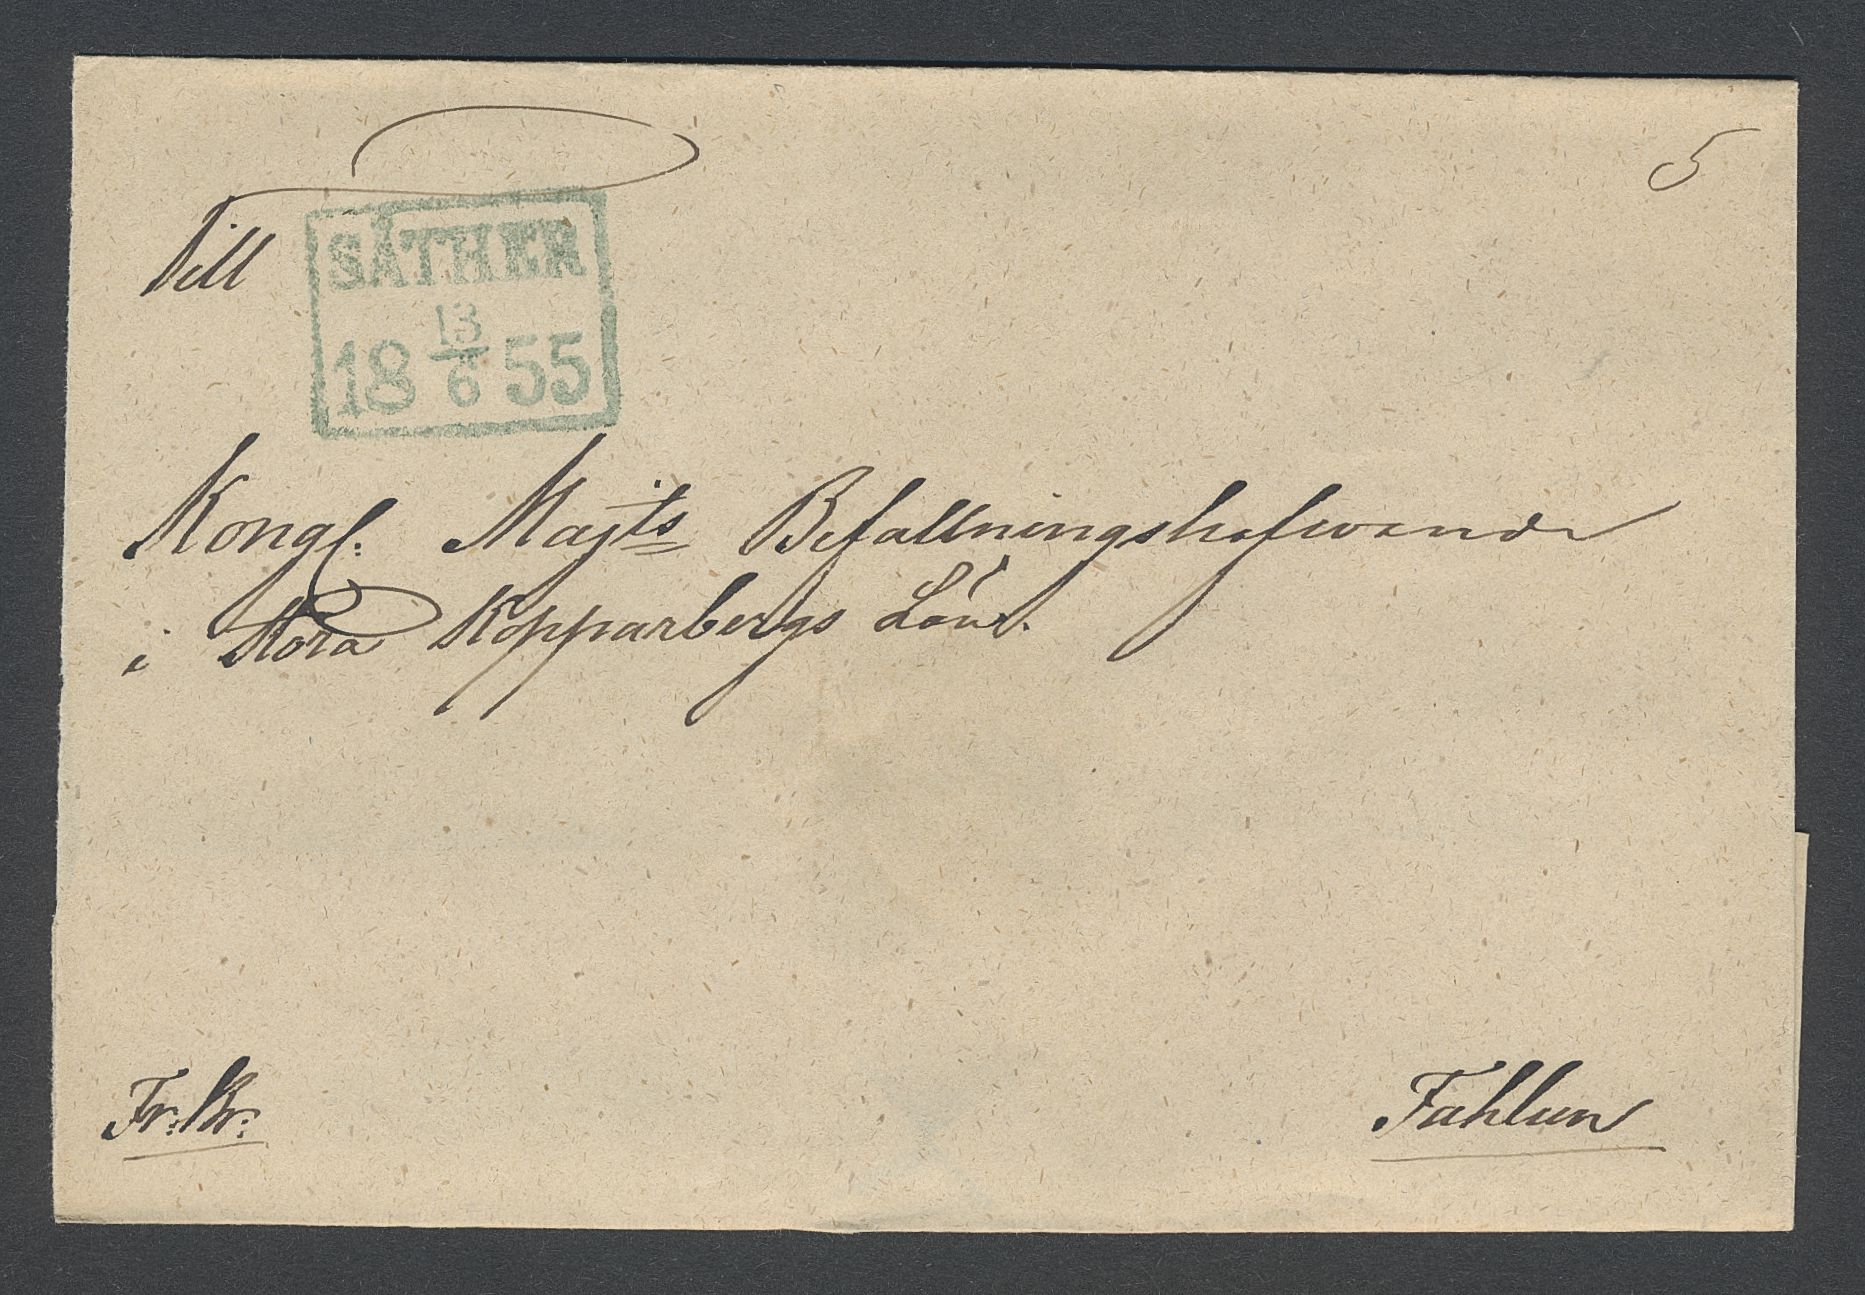 5
Till
SÄTHER
18 13/6 55
Kongl. Majts Befallningshafwande
i Stora Kopparbergs Län.
Fr: Br:
Fahlun